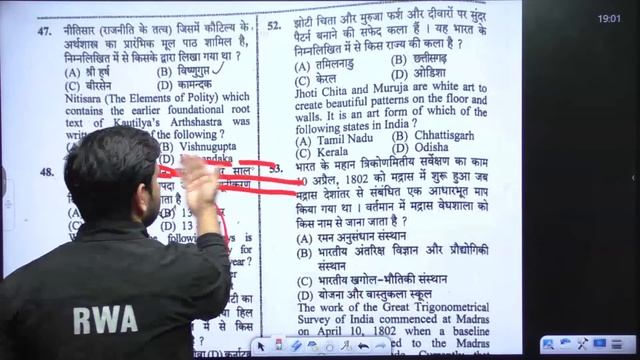 47. नीतिसार (राजनीति के तत्व) जिसमें कौटिल्य के
अर्थशास्त्र का प्रारंभिक मूल पाठ शामिल है,
निम्नलिखित में से किसके द्वारा लिखा गया था ?
(A) श्री हर्ष (B) विष्णुगुप्त
(C) बीरसेन (D) कामन्दक
Nitisara (The Elements of Polity) which
contains the earlier foundational root
text of Kautilya's Arthshastra was
of the following ?
(B) Vishnugupta
48.
साल
(B) 13
(D) 13
following is
for
year ?
RWA
52. झोटी चिता और मुरुजा फर्श और दीवारों पर सुंदर
पैटर्न बनाने की सफेद कला हैं । यह भारत के
निम्नलिखित में से किस राज्य की कला है ?
(A) तमिलनाडु (B) छत्तीसगढ़
(C) केरल (D) ओडिशा
Jhoti Chita and Muruja are white art to
create beautiful patterns on the floor and
walls. It is an art form of which of the
following states in India ?
(A) Tamil Nadu (B) Chhattisgarh
(C) Kerala (D) Odisha
53. भारत के महान त्रिकोणमितीय सर्वेक्षण का काम
10 अप्रैल, 1802 को मद्रास में शुरू हुआ जब
मद्रास देशांतर से संबंधित एक आधारभूत माप
किया गया था । वर्तमान में मद्रास वेधशाला को
किस नाम से जाना जाता है ?
(A) रमन अनुसंधान संस्थान
(B) भारतीय अंतरिक्ष विज्ञान और प्रौद्योगिकी
संस्थान
(C) भारतीय खगोल-भौतिकी संस्थान
(D) योजना और वास्तुकला स्कूल
The work of the Great Trigonometrical
Survey of India commenced at Madras
on April 10, 1802 when a baseline
to the Madras
19:01